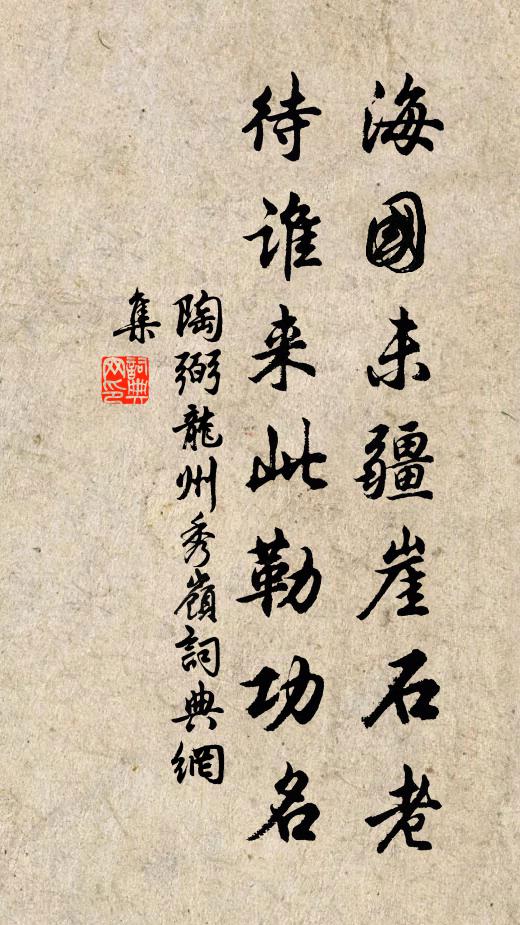 海國未疆崖石老
待誰来此勒功名
陶弼龍州秀嶺詞典網
集
詞典
网印